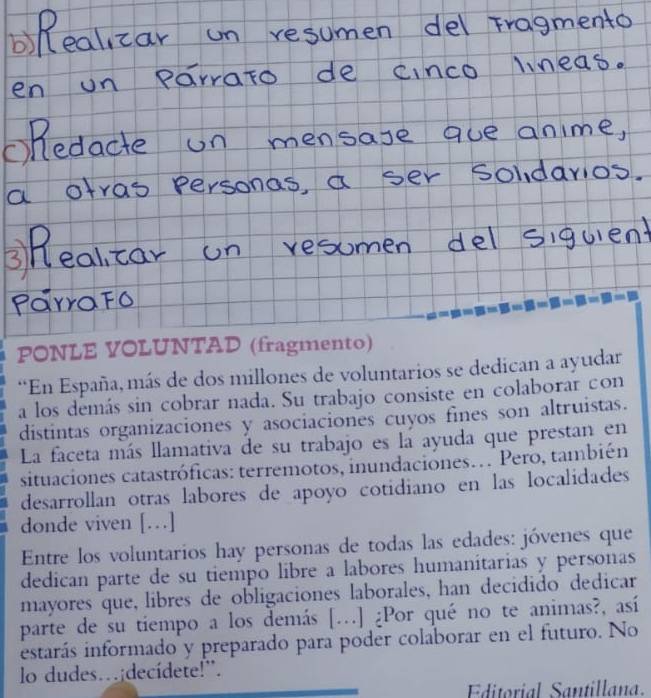 b) Realizar un resumen del Fragmento
en un Párrafo de cinco líneas.
c) Redacte un mensaje que anime,
a otras Personas, a ser solidarios.
3) Realizar un resumen del siguient
Párrafo
PONLE VOLUNTAD (fragmento)
“En España, más de dos millones de voluntarios se dedican a ayudar
a los demás sin cobrar nada. Su trabajo consiste en colaborar con
distintas organizaciones y asociaciones cuyos fines son altruistas.
La faceta más llamativa de su trabajo es la ayuda que prestan en
situaciones catastróficas: terremotos, inundaciones... Pero, también
desarrollan otras labores de apoyo cotidiano en las localidades
donde viven [...]
Entre los voluntarios hay personas de todas las edades: jóvenes que
dedican parte de su tiempo libre a labores humanitarias y personas
mayores que, libres de obligaciones laborales, han decidido dedicar
parte de su tiempo a los demás [...] ¿Por qué no te animas?, así
estarás informado y preparado para poder colaborar en el futuro. No
lo dudes...¡decídete!”.
Editorial Santillana.